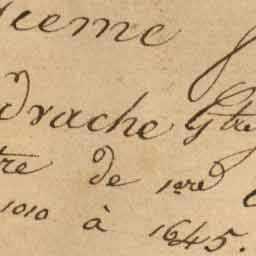 ieme
drache Gtry
tre de 1ere
1010 à 1645.